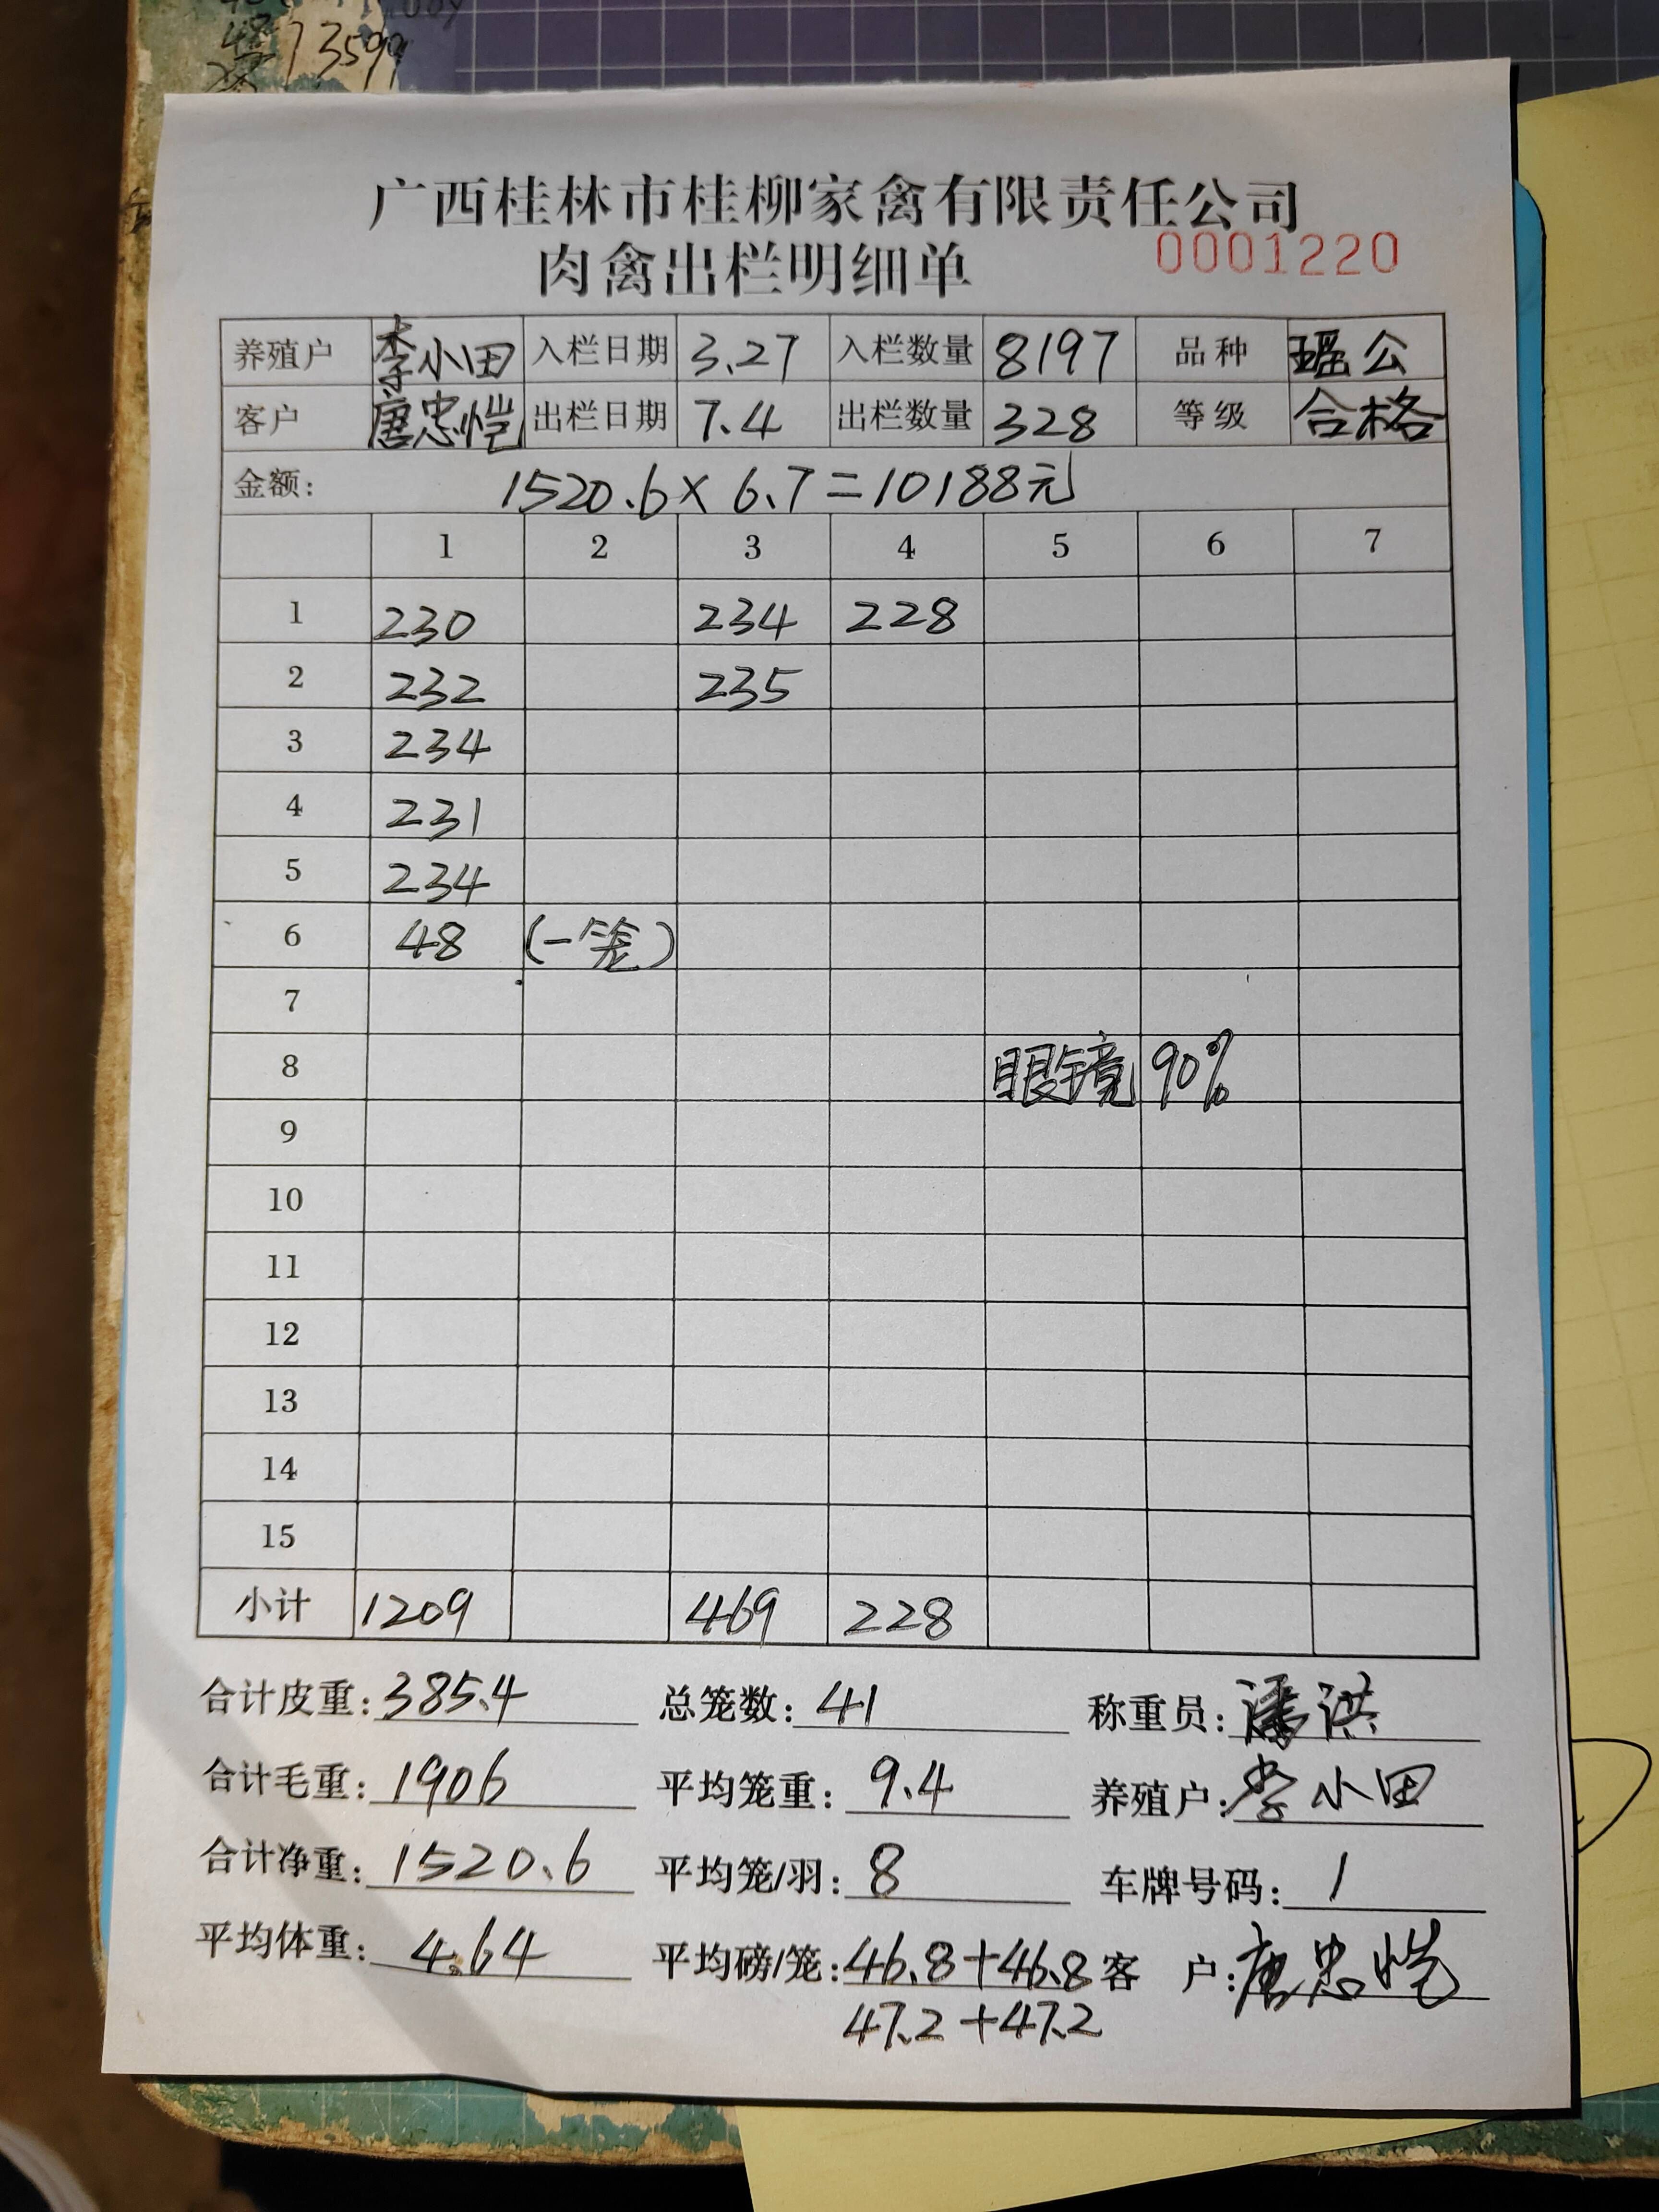 13599
广西桂林市桂柳家禽有限责任公司
肉禽出栏明细单 0001220
养殖户 李小田 入栏日期 3.27 入栏数量 8197 品种 瑶公
客户 唐忠恺 出栏日期 7.4 出栏数量 328 等级 合格
金额: 1520.6×6.7=10188元
1 2 3 4 5 6 7
1 230 234 228
2 232 235
3 234
4 231
5 234
6 48 (一笼)
7
8 眼镜 90%
9
10
11
12
13
14
15
小计 1209 469 228
合计皮重: 385.4 总笼数: 41 称重员: 潘洪
合计毛重: 1906 平均笼重: 9.4 养殖户: 李小田
合计净重: 1520.6 平均笼/羽: 8 车牌号码: 1
平均体重: 4.64 平均磅/笼: 46.8+46.8 客 户: 唐忠恺
47.2+47.2